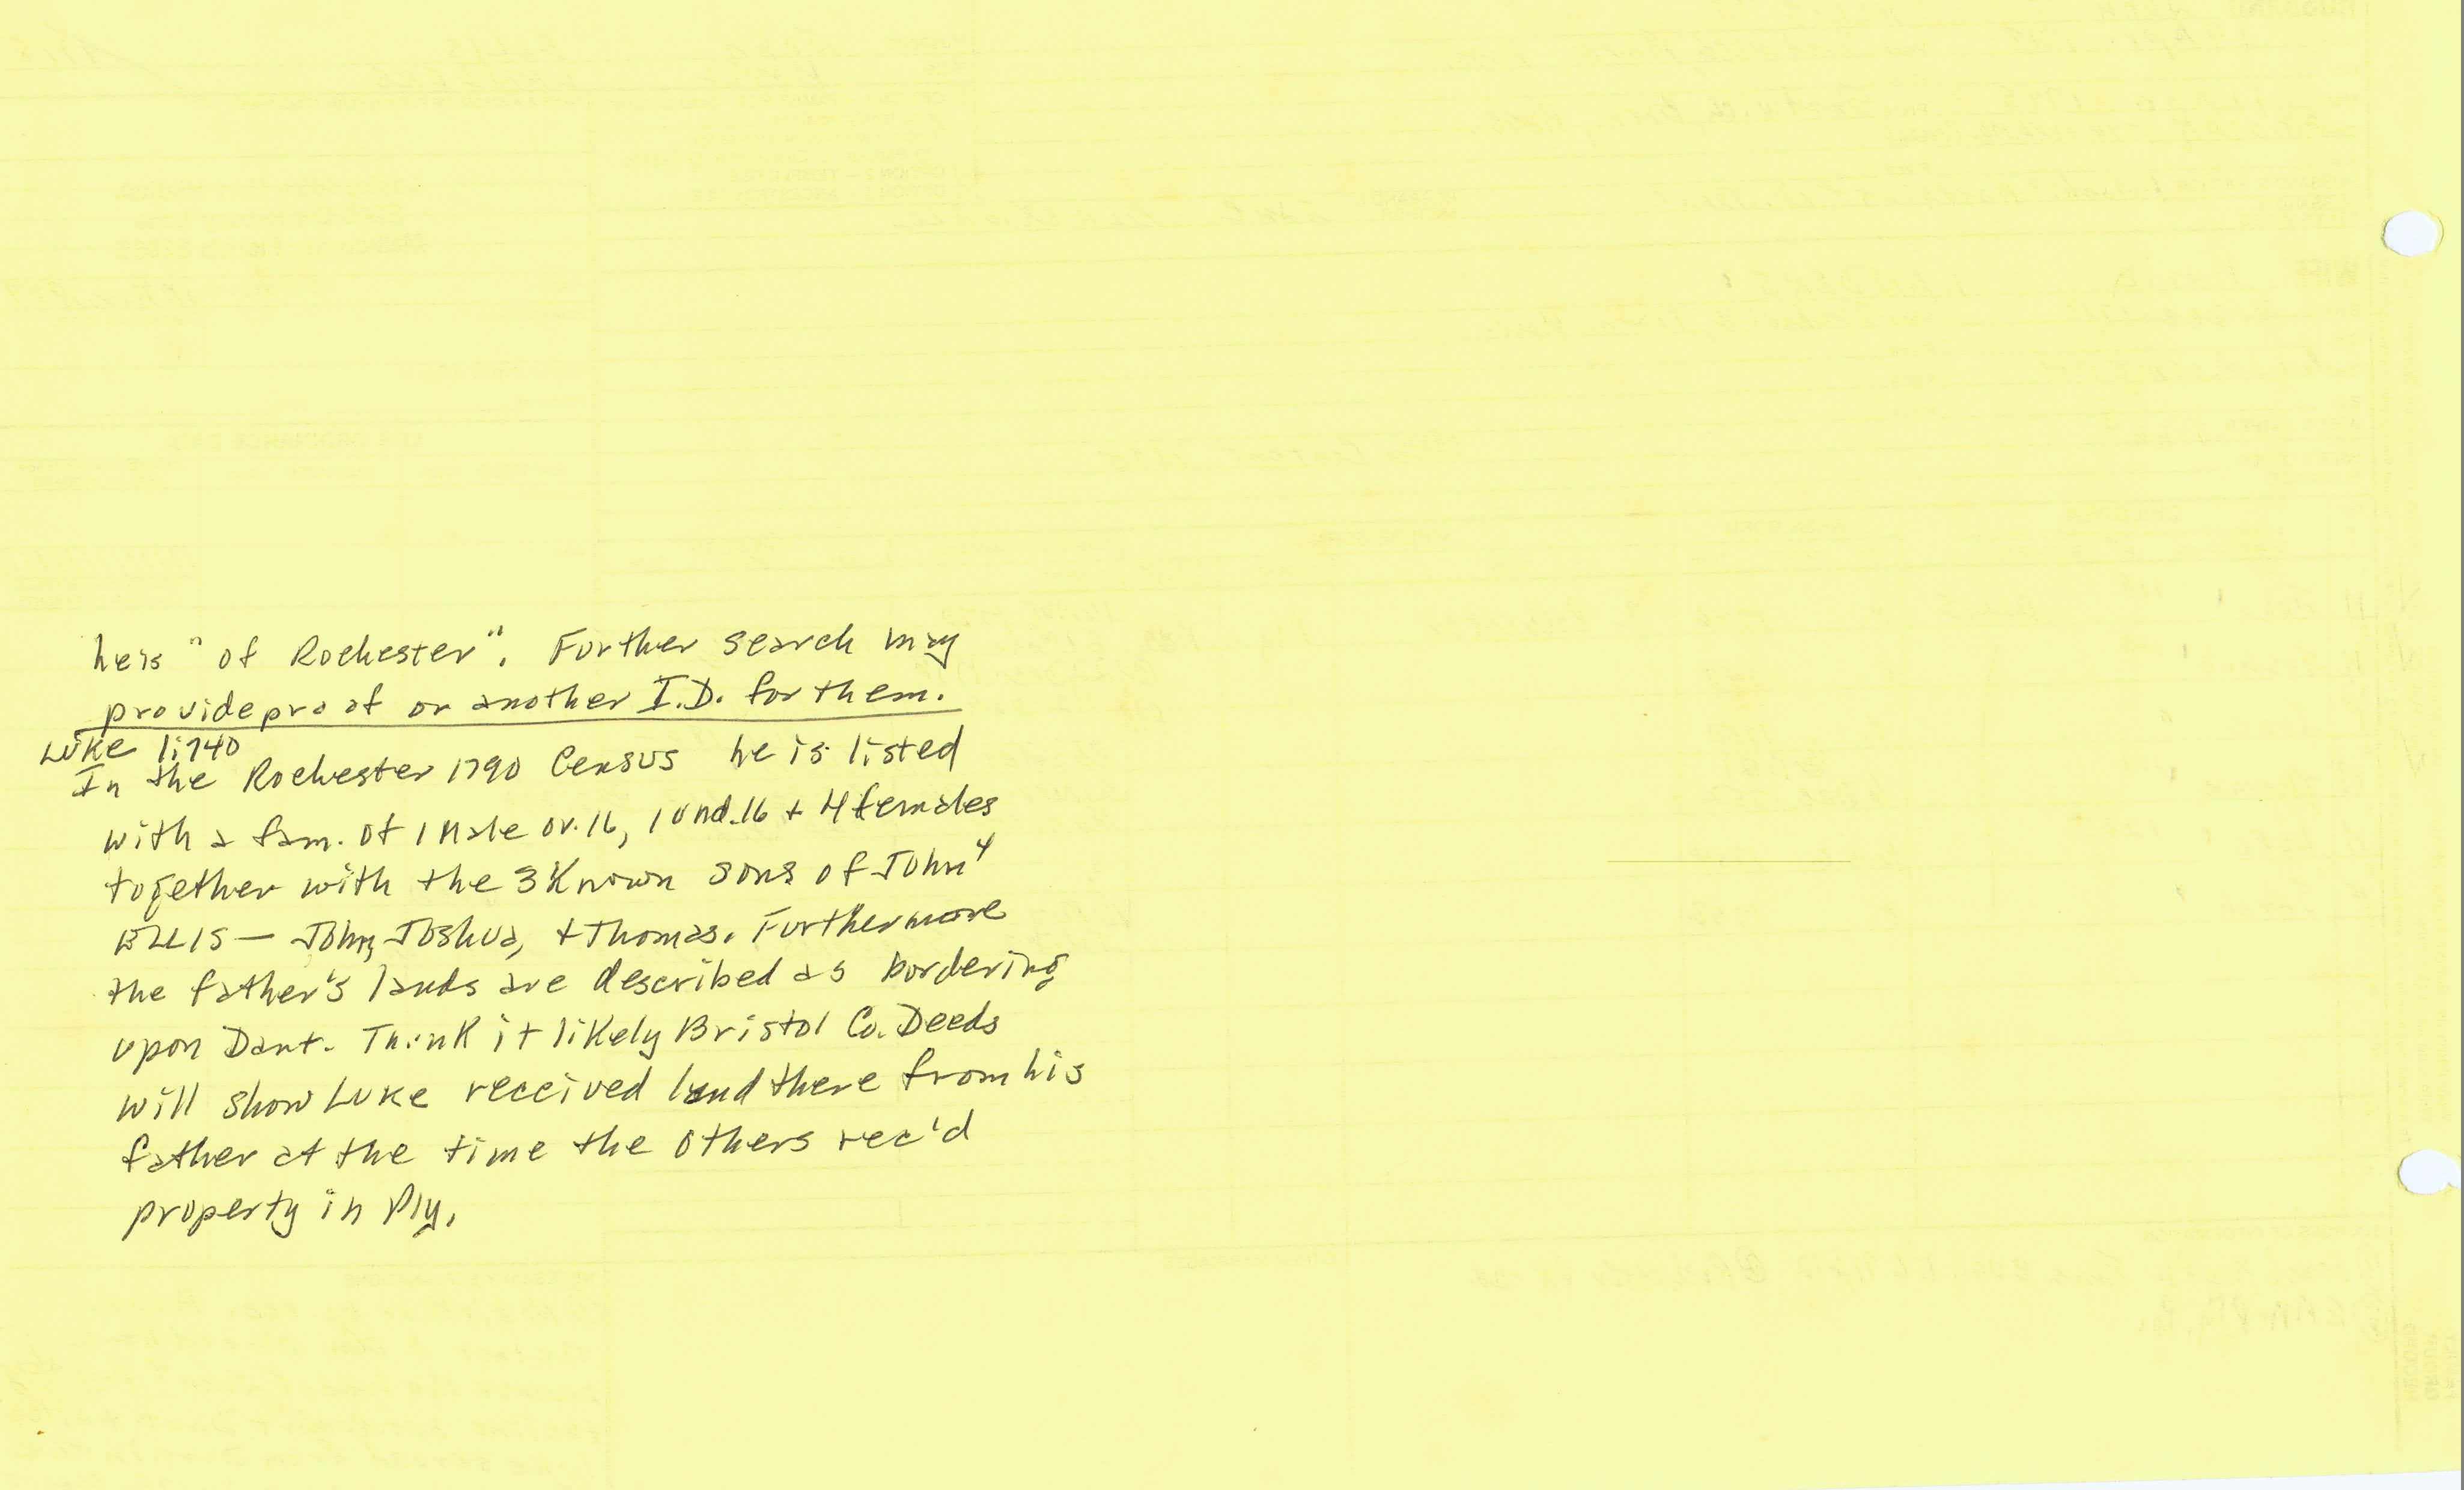 heis "of Rochester". Further search may
provide proof or another I.D. for them.
Luke 1:740
In the Rochester 1790 Census he is listed
with a fam. of 1 Male ov. 16, 1 und. 16 + 4 females
together with the 3 Known sons of John⁴
Ellis — John, Joshua, + Thomas. Furthermore
the father's lands are described as bordering
upon Dart. Think it likely Bristol Co. Deeds
will show Luke received land there from his
father at the time the others rec'd
property in Ply.